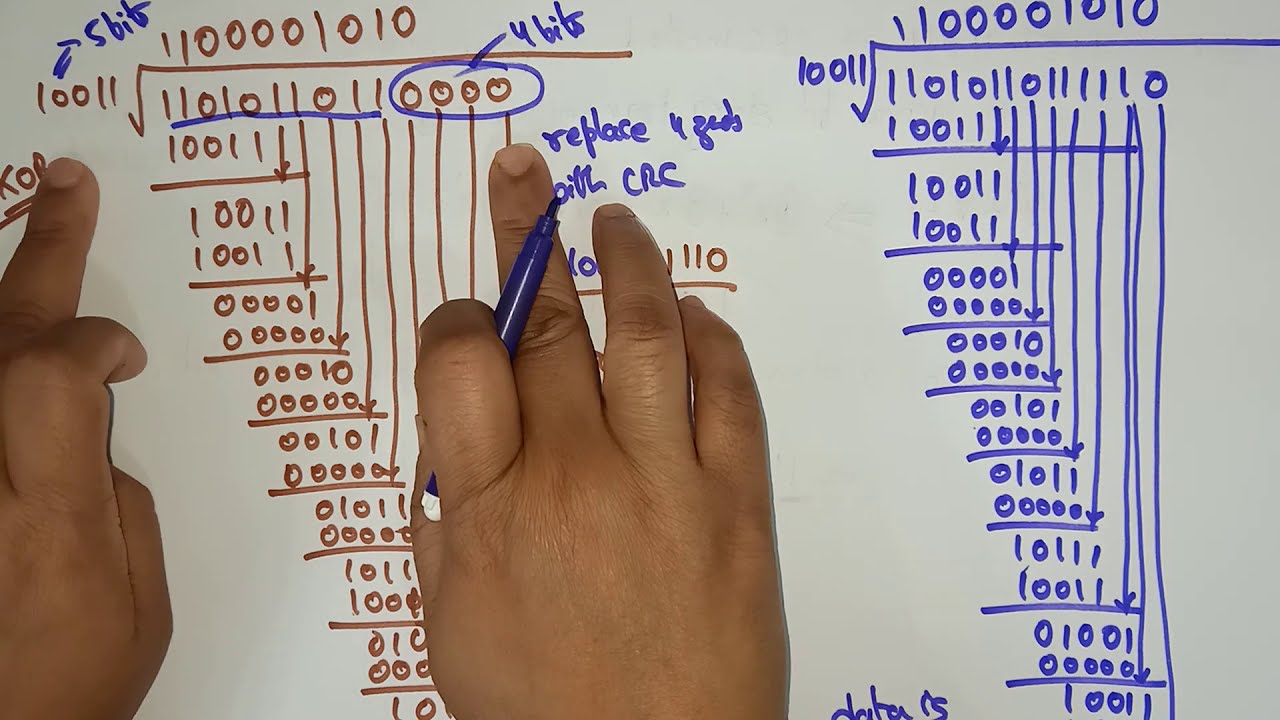 5bit
1100001010
4 bits
10011
1101011011 0000
10011
10011
10011
00001
00000
00010
00000
00101
00000
01011
replace 4 zeros
with CRC
1110
1100001010
10011
11010110111110
10011
10011
10011
00001
00000
00010
00000
00101
00000
01011
00000
10111
10011
01001
00000
10011
data is